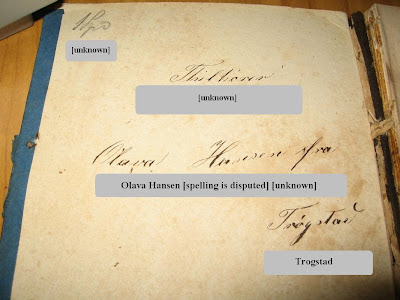 [unknown]
Tilhører
[unknown]
Olava Hansen fra
Olava Hansen [spelling is disputed] [unknown]
Trøgstad
Trogstad